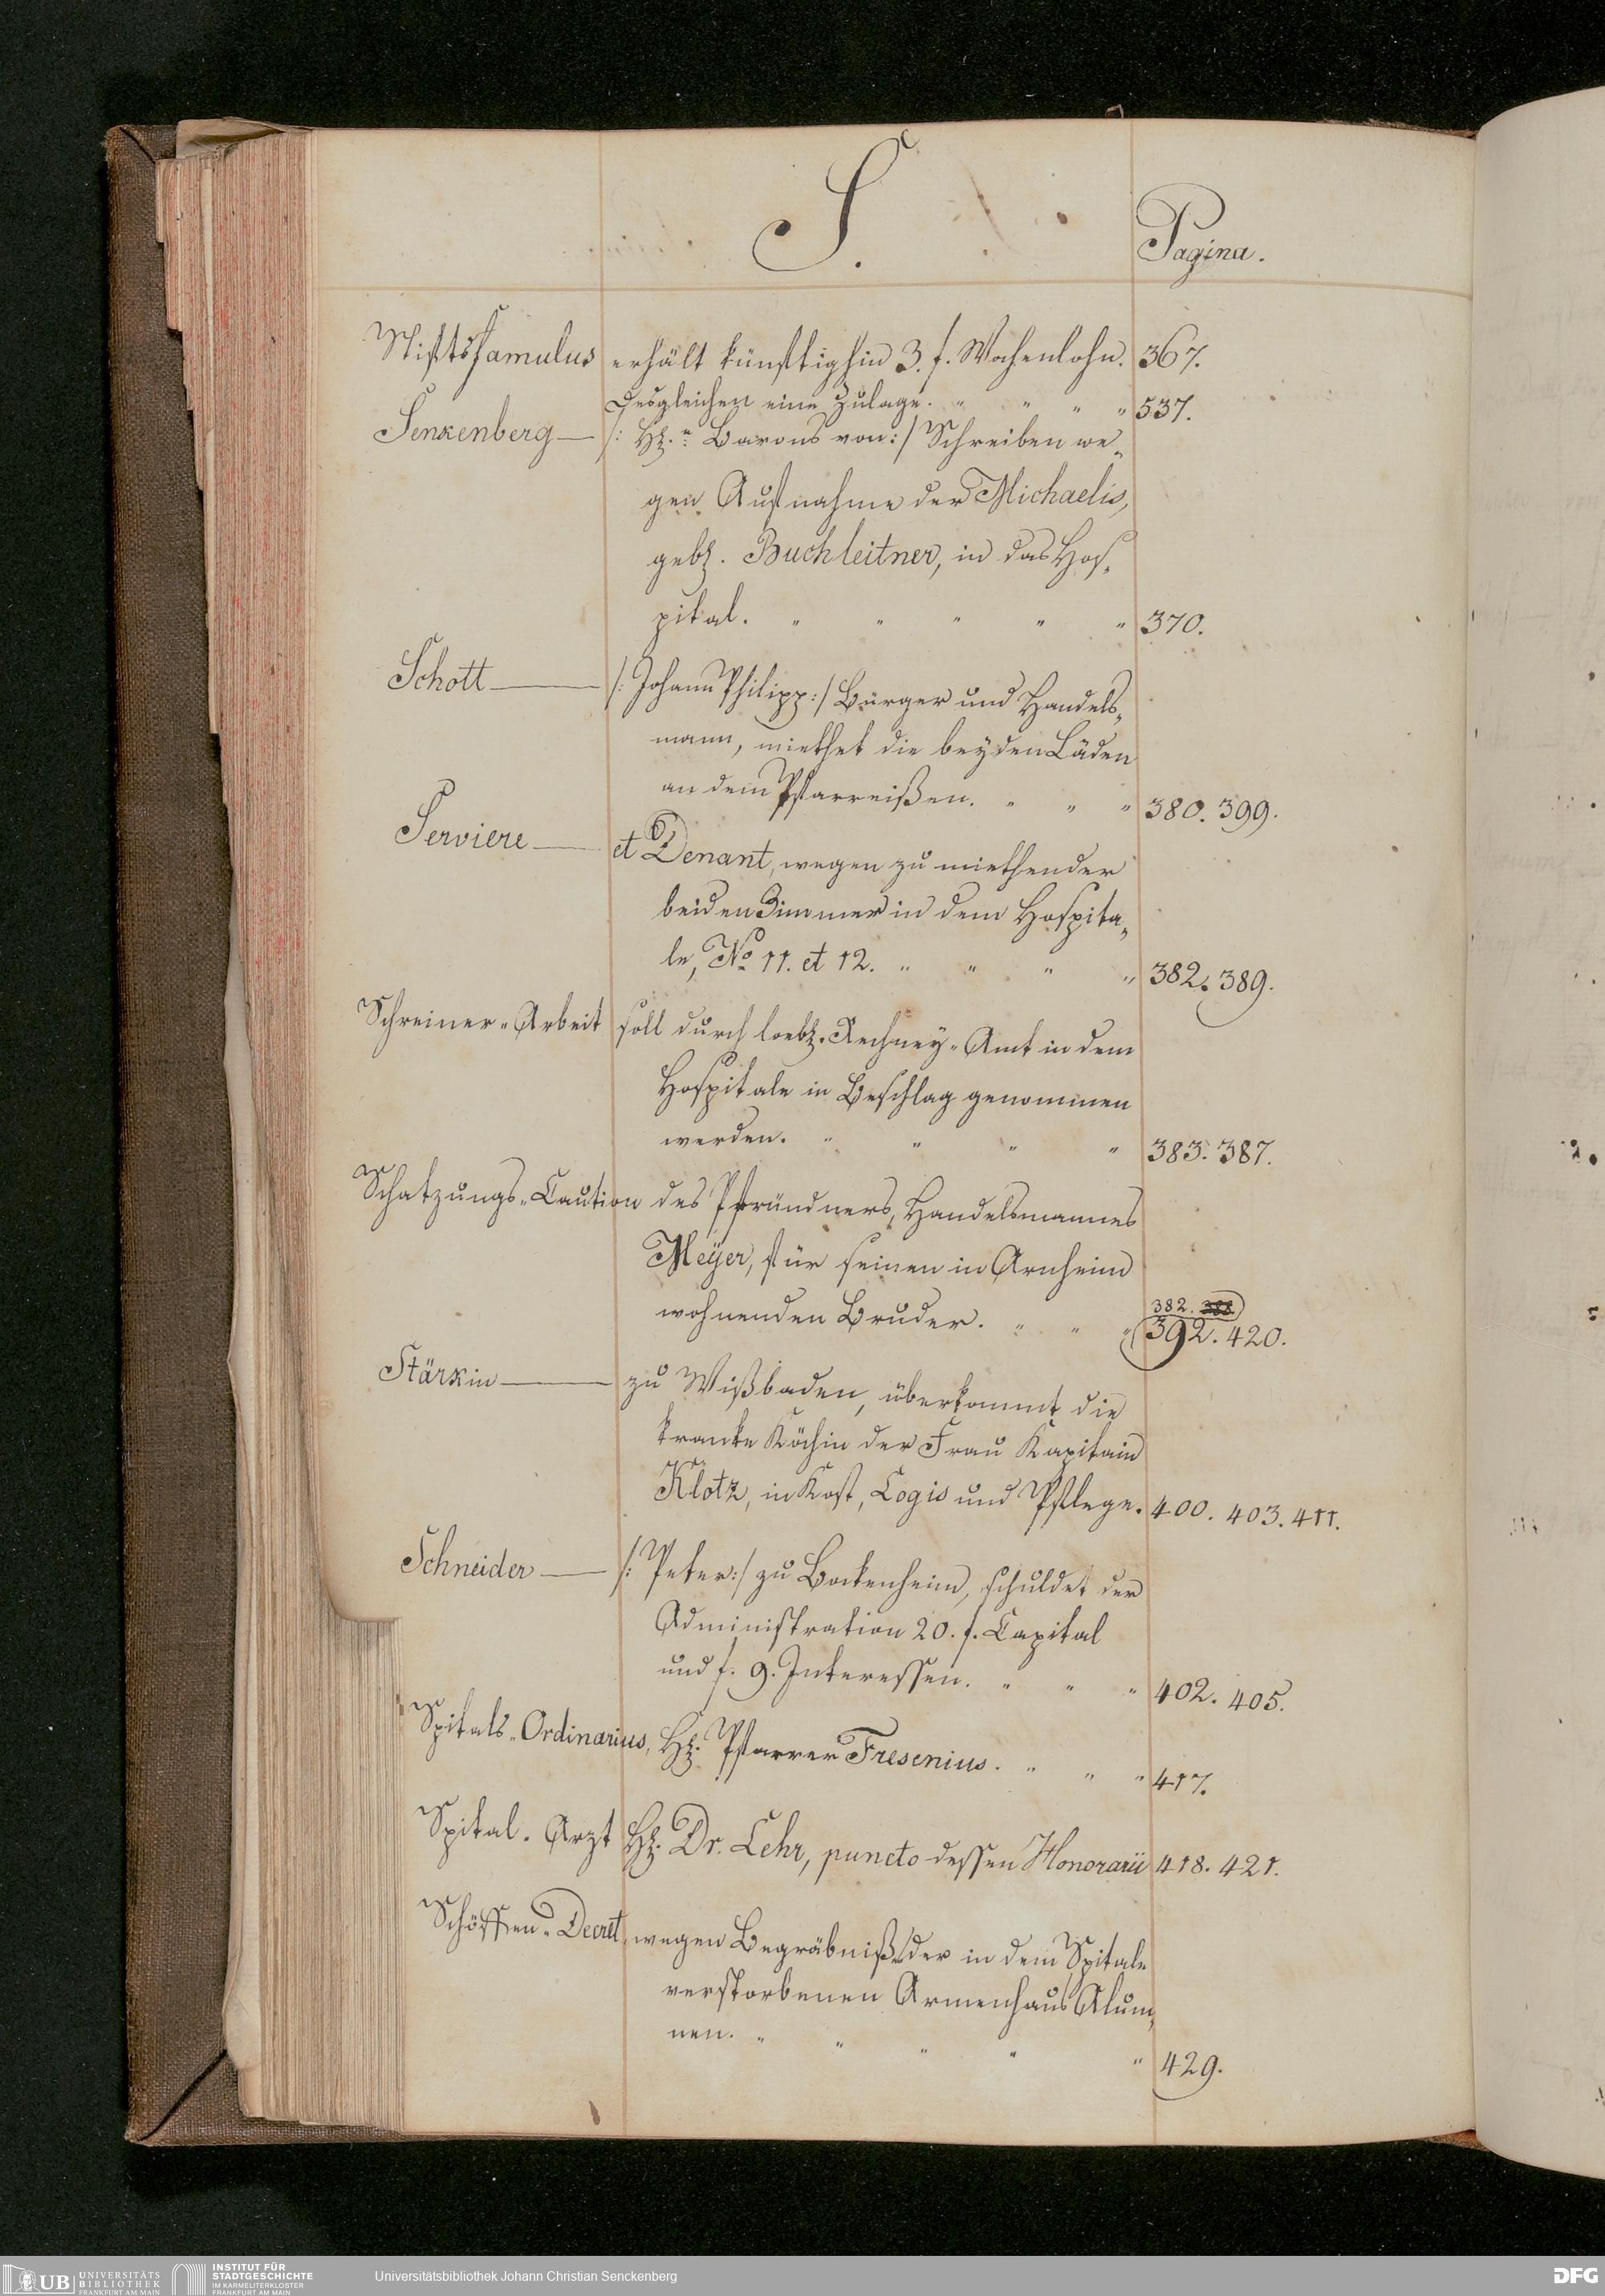 S.
Pagina.
Stiftsfamulus erhält künftighin 3. f. Wochenlohn. 367.
Desgleichen eine Zulage. " " " " 537.
Senkenberg — /: H. n Barons von :/ Schreiben we„
gen Aufnahme der Michaelis,
geb. Buchleitner, in das Hos„
pital. " " " " " 370.
Schott — /: Johann Philipp :/ Bürger und Handels„
mann, miethet die beyden Läden
an dem Pfarreisen. " " " 380. 399.
Serviere — et Denant, wegen zu miethender
beiden Zimmer in dem Hospita„
le, No 11. et 12. " " " " 382. 389.
Schreiner-Arbeit soll durch loebl. Rechney-Amt in dem
Hospitale in Beschlag genommen
werden. " " " " 383. 387.
Schatzungs-Caution des Pfründners, Handelsmannes
Meÿer, für seinen in Arnheim
382. 388
wohnenden Bruder. " " " 392. 420.
Stärkin — zu Wißbaden, überkommt die
kranke Köchin der Frau Kapitain
Klotz, in Kost, Logis und Pflege. 400. 403. 411.
Schneider — /: Peter :/ zu Bockenheim, schuldet der
Administration 20. f. Capital
und f. 9. Interessen. " " " 402. 405.
Spitals-Ordinarius, H. Pfarrer Fresenius. " " " 417.
Spital-Arzt H. Dr. Lehr, puncto dessen Honorarii 418. 421.
Schöffen-Decret, wegen Begräbniß der in dem Spitale
verstorbenen Armenhaus Alum„
nen. " " " " " 429.
UB UNIVERSITÄTS BIBLIOTHEK FRANKFURT AM MAIN
INSTITUT FÜR STADTGESCHICHTE IM KARMELITERKLOSTER FRANKFURT AM MAIN
Universitätsbibliothek Johann Christian Senckenberg
DFG